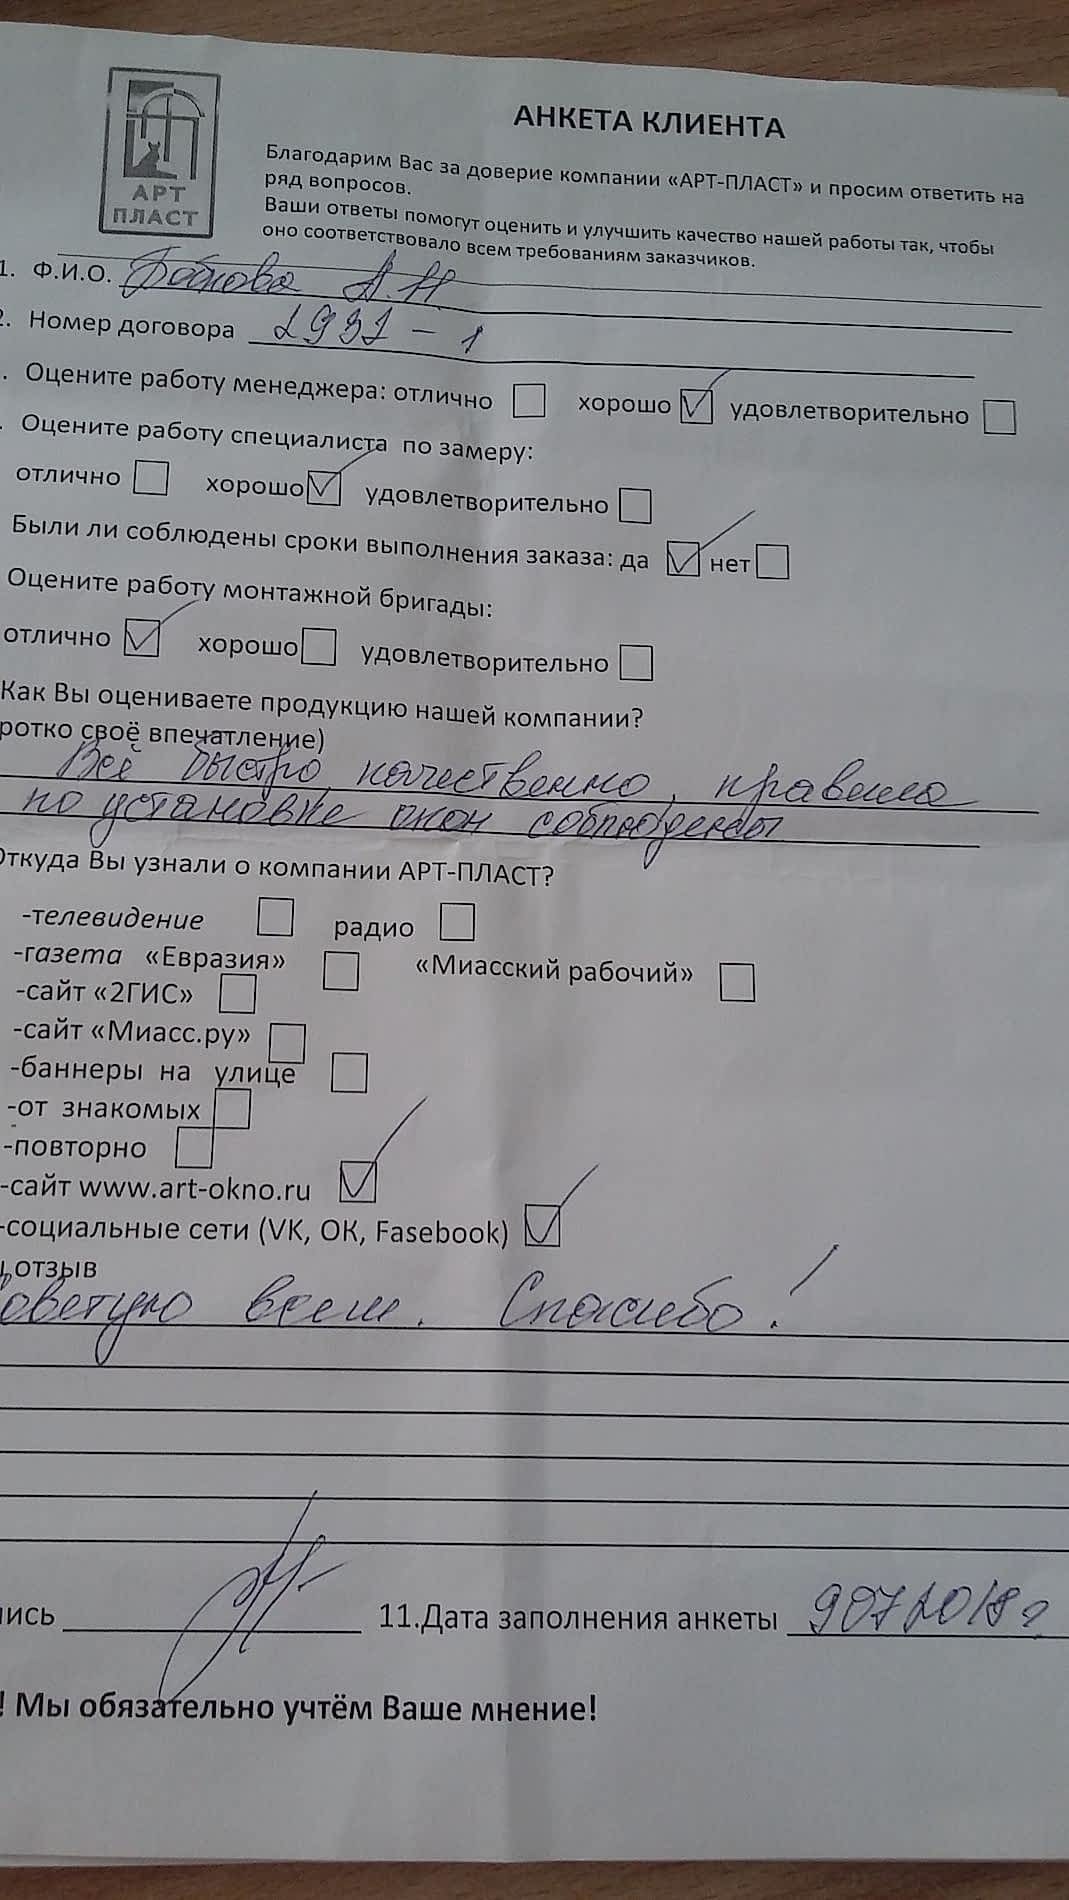 АРТ
ПЛАСТ
АНКЕТА КЛИЕНТА
Благодарим Вас за доверие компании «АРТ-ПЛАСТ» и просим ответить на
ряд вопросов.
Ваши ответы помогут оценить и улучшить качество нашей работы так, чтобы
оно соответствовало всем требованиям заказчиков.
1. Ф.И.О. А.Н
2. Номер договора 2931-1
. Оцените работу менеджера: отлично хорошо удовлетворительно
. Оцените работу специалиста по замеру:
отлично хорошо удовлетворительно
Были ли соблюдены сроки выполнения заказа: да нет
Оцените работу монтажной бригады:
отлично хорошо удовлетворительно
Как Вы оцениваете продукцию нашей компании?
ротко своё впечатление)
Всё быстро, качественно, правила
по установке окон соблюдены
Откуда Вы узнали о компании АРТ-ПЛАСТ?
-телевидение радио
-газета «Евразия» «Миасский рабочий»
-сайт «2ГИС»
-сайт «Миасс.ру»
-баннеры на улице
-от знакомых
-повторно
-сайт www.art-okno.ru
-социальные сети (VK, ОК, Fasebook)
отзыв
Советую всем. Спасибо!
пись 11.Дата заполнения анкеты 9072018г
! Мы обязательно учтём Ваше мнение!